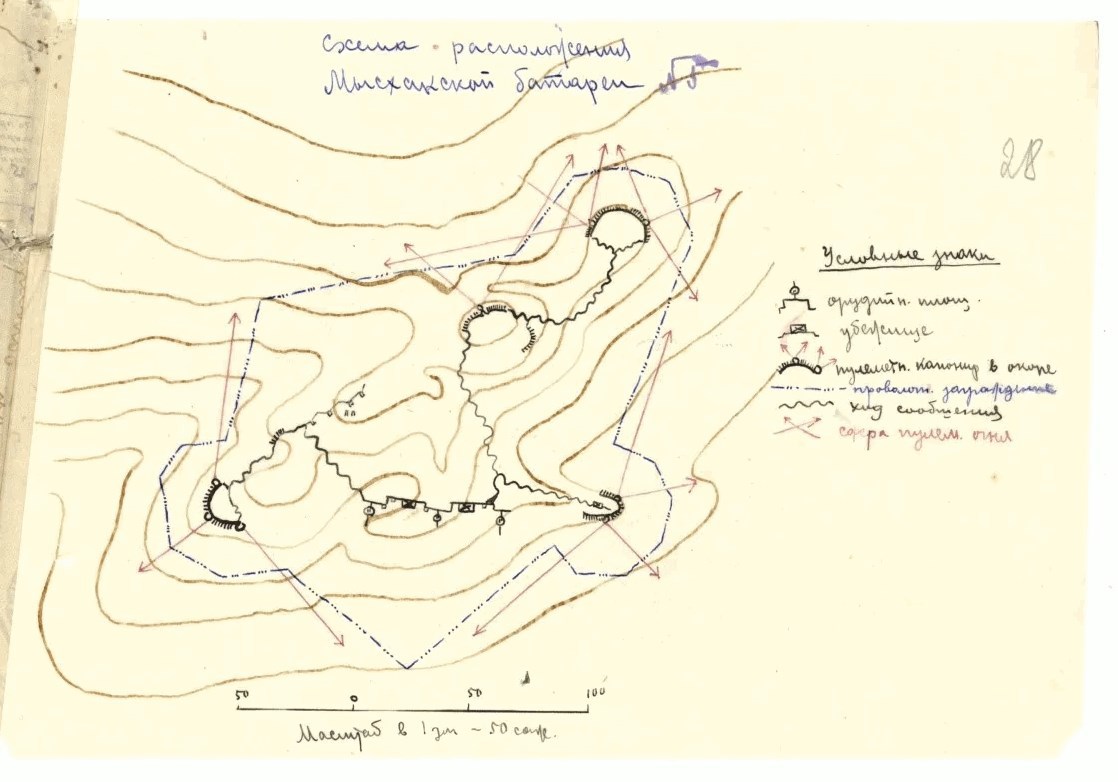 Схема расположения
Мысхакской батареи № 5
28
Условные знаки
орудийн. площ.
убежище
пулеметн. капонир в окопе
проволоч. заграждение
ход сообщения
сфера пулем. огня
50 0 50 100
Масштаб в 1 дм – 50 саж.